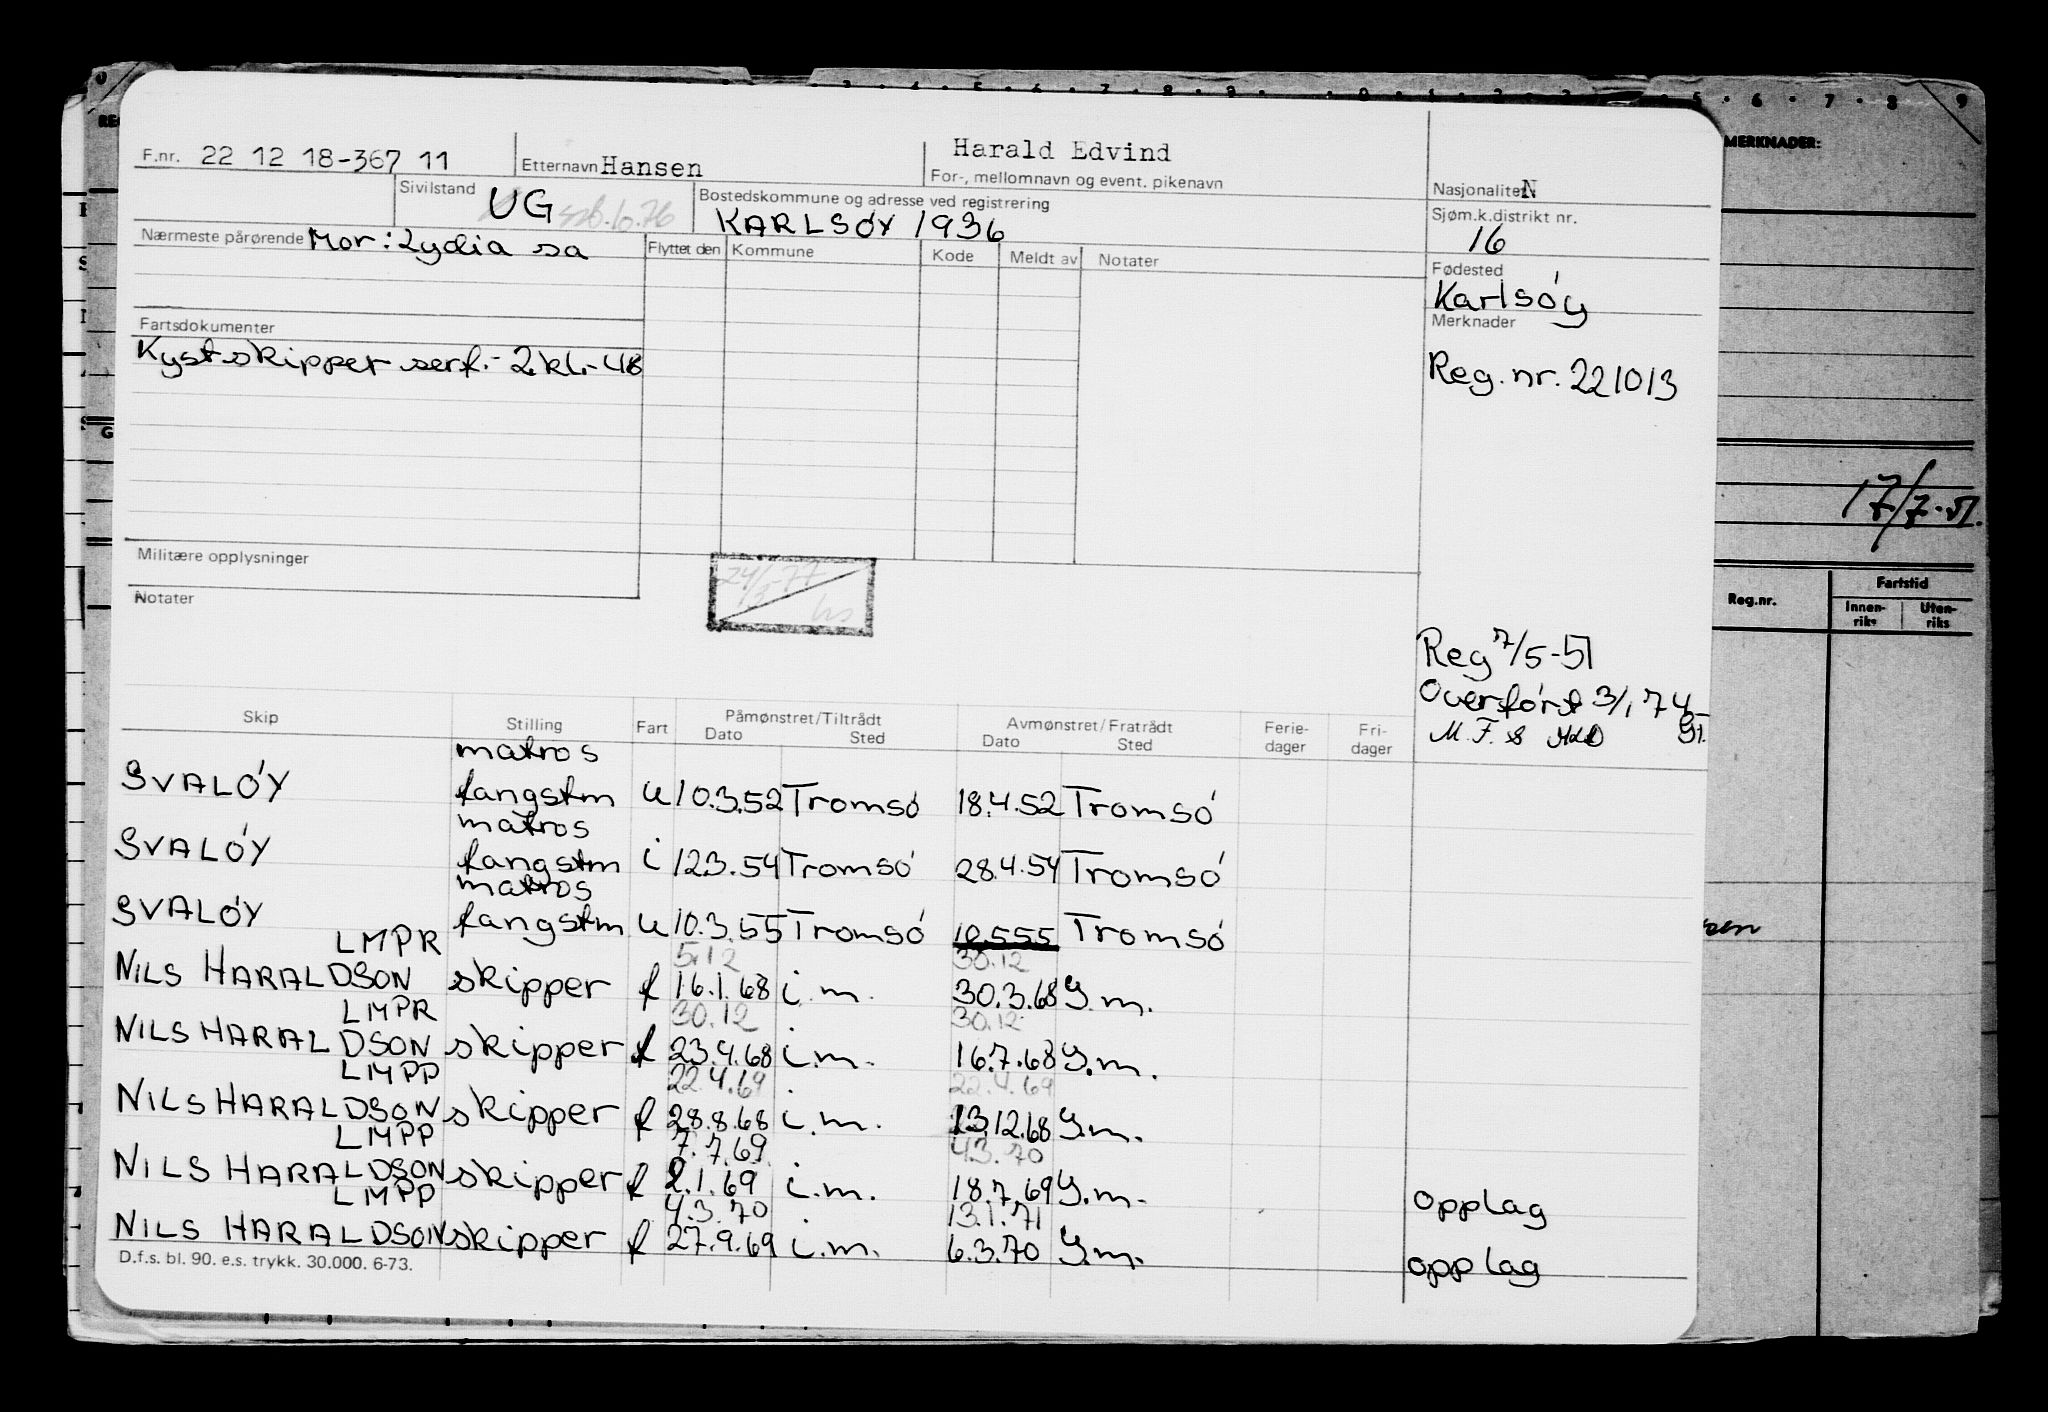 F.nr. 22 12 18-367 11 Etternavn Hansen Harald Edvind
For-, mellomnavn og event. pikenavn
Nasjonalitet N
Sivilstand UG
Bostedskommune og adresse ved registrering
KARLSÓY 1936
Sjøm.k.distrikt nr.
16
Nærmeste pårørende Mor: Lydia sa
Flyttet den Kommune Kode Meldt av Notater
Fødested
Karlsóy
Merknader
Fartsdokumenter
Kystskipper serf.- 2.kl.-48
Reg.nr. 221013
Militære opplysninger
24/3-77
Notater
Reg 7/5-51
Overfórt 3/1 74
M.F.
Skip Stilling Fart Påmønstret/Tiltrådt Avmønstret/Fratrådt Ferie-dager Fri-dager
Dato Sted Dato Sted
matros
SVALÓY fangstm u 10.3.52 Tromsó 18.4.52 Tromsó
matros
SVALÓY fangstm i 12.3.54 Tromsó 28.4.54 Tromsó
matros
SVALÓY fangstm u 10.3.55 Tromsó 10.5.55 Tromsó
LMPR 5.12 30.12
NILS HARALDSON skipper f 16.1.68 i.m. 30.3.68 Y.m.
LMPR 30.12 30.12
NILS HARALDSON skipper f 23.4.68 i.m. 16.7.68 Y.m.
LMPP 22.4.69 22.4.69
NILS HARALDSON skipper f 28.8.68 i.m. 13.12.68 Y.m.
LMPP 7.7.69 4.3.70
NILS HARALDSON skipper f 2.1.69 i.m. 18.7.69 Y.m. opplag
LMPP 4.3.70 13.1.71
NILS HARALDSON skipper f 27.9.69 i.m. 6.3.70 Y.m. opplag
D.f.s. bl. 90. e.s. trykk. 30.000. 6-73.
MERKNADER:
17/7-51.
Reg.nr. Fartstid
Innen-riks Uten-riks